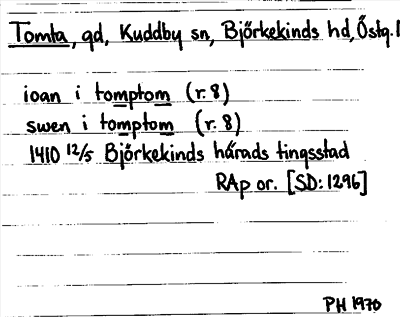 Tomta, gd, Kuddby sn, Björkekinds hd, Östg.
ioan i tomptom (r. 8)
swen i tomptom (r. 8)
1410 12/5 Björkekinds härads tingsstad
RAp or. [SD: 1296]
PH 1970